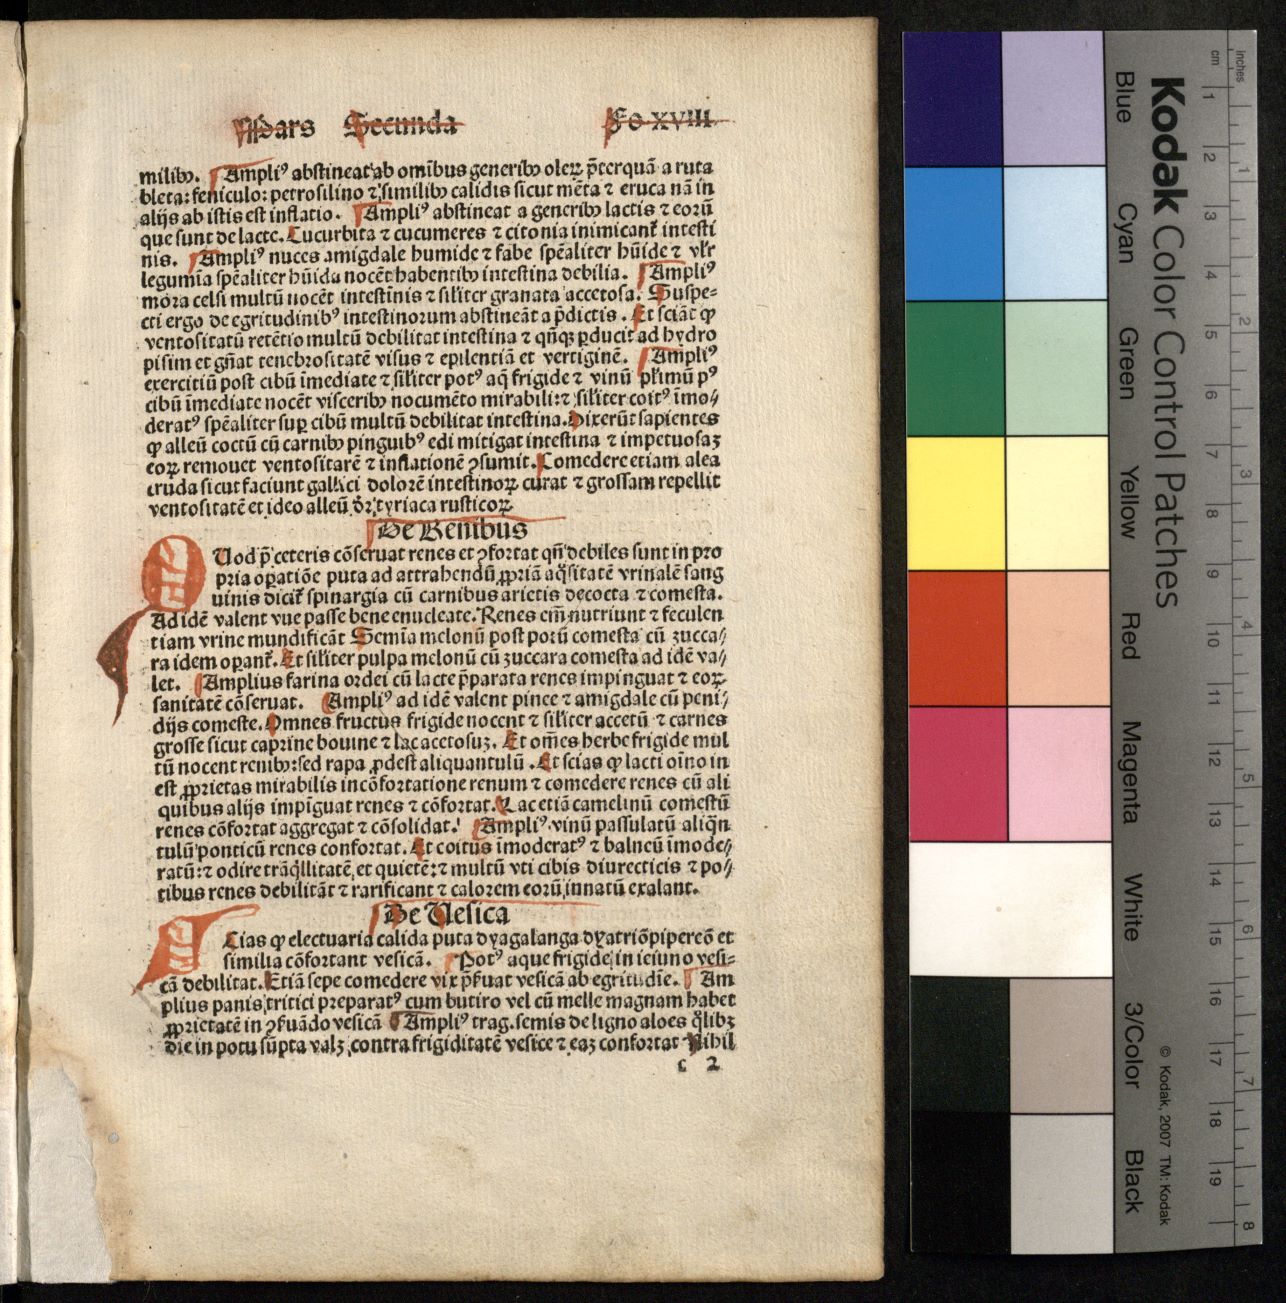 Pars Secunda Fo. xviii.
milibꝫ. Ampliꝰ abstineat ab om̄ibus generibꝫ oleꝝ p̄terquā a ruta
bleta: feniculo: petrosilino ⁊ similibꝫ calidis sicut mēta ⁊ eruca nā in
alijs ab istis est inflatio. Ampliꝰ abstineat a generibꝫ lactis ⁊ eorū
que sunt de lacte. Cucurbita ⁊ cucumeres ⁊ citonia inimicanť intesti
nis. Ampliꝰ nuces amigdale humide ⁊ fabe spēaliter hūide ⁊ vľr
legumīa spēaliter hūida nocēt habentibꝫ intestina debilia. Ampliꝰ
mora celsi multū nocēt intestīnis ⁊ siľiter granata accetosa. Suspe⸗
cti ergo de egritudinibꝰ intestinorum abstineāt a p̄dictis. Et sciāt ꝙ
ventositatū retētio multū debilitat intestina ⁊ qn̄qꝫ ꝑducit ad hydro
pisim et gn̄at tenebrositatē visus ⁊ epilentiā et vertiginē. Ampliꝰ
exercitiū post cibū īmediate ⁊ siľiter potꝰ aq̄ frigide ⁊ vinū pľimū pꝰ
cibū īmediate nocēt visceribꝫ nocumēto mirabili: ⁊ siľiter coitꝰ īmo⸗
deratꝰ spēaliter suꝑ cibū multū debilitat intestina. Dixerūt sapientes
ꝙ alleū coctū cū carnibꝫ pinguibꝰ edi mitigat intestina ⁊ impetuosaꝫ
eoꝝ remouet ventositatē ⁊ inflationē ꝯsumit. Comedere etiam alea
cruda sicut faciunt gallici dolorē intestinoꝝ curat ⁊ grossam repellit
ventositatē et ideo alleū dr̄ tyriaca rusticoꝝ.
De Renibus
QUod p̄ ceteris cōseruat renes et ꝯfortat qn̄ debiles sunt in pro
pria oꝑatiōe puta ad attrahendū ꝓpriā aq̄sitatē vrinalē sang
uinis dicit̄ spinargia cū carnibus arietis decocta ⁊ comesta.
Ad idē valent vue passe bene enucleate. Renes em̄ nutriunt ⁊ feculen
tiam vrine mundificāt Semīa melonū post potū comesta cū zucca⸗
ra idem oꝑant̄. Et siľiter pulpa melonū cū zuccara comesta ad idē va⸗
let. Amplius farina ordei cū lacte p̄parata renes impinguat ⁊ eoꝝ
sanitatē cōseruat. Ampliꝰ ad idē valent pinee ⁊ amigdale cū peni⸗
dijs comeste. Omnes fructus frigide nocent ⁊ siľiter accetū ⁊ carnes
grosse sicut caprine bouine ⁊ lac acetosuꝫ. Et om̄es herbe frigide mul
tū nocent renibꝫ: sed rapa ꝓdest aliquantulū. Et scias ꝙ lacti oīno in
est ꝓprietas mirabilis in cōfortatione renum ⁊ comedere renes cū ali
quibus alijs impīguat renes ⁊ cōfortat. Lac etiā camelinū comestū
renes cōfortat aggregat ⁊ cōsolidat. Ampliꝰ vinū passulatū aliq̄n
tulū ponticū renes confortat. Et coitus īmoderatꝰ ⁊ balneū īmode⸗
ratū: ⁊ odire trāq̄llitatē et quietē: ⁊ multū vti cibis diurecticis ⁊ po⸗
tibus renes debilitāt ⁊ rarificant ⁊ calorem eorū innatū exalant.
De Uesica
SCias ꝙ electuaria calida puta dyagalanga dyatriōpipereō et
similia cōfortant vesicā. Potꝰ aque frigide in ieiuno vesi⸗
cā debilitat. Etiā sepe comedere vix p̄seruat vesicā ab egritudie. Am
plius panis tritici preparatꝰ cum butiro vel cū melle magnam habet
ꝓprietatē in ꝯseruādo vesicā Ampliꝰ trag. semis de ligno aloes q̄libꝫ
die in potu sūpta valꝫ contra frigiditatē vesice ⁊ eaꝫ confortat Nihil
c 2
Kodak Color Control Patches
Blue Cyan Green Yellow Red Magenta White 3/Color Black
© Kodak, 2007 TM: Kodak
cm 1 2 3 4 5 6 7 8 9 10 11 12 13 14 15 16 17 18 19
inches 1 2 3 4 5 6 7 8